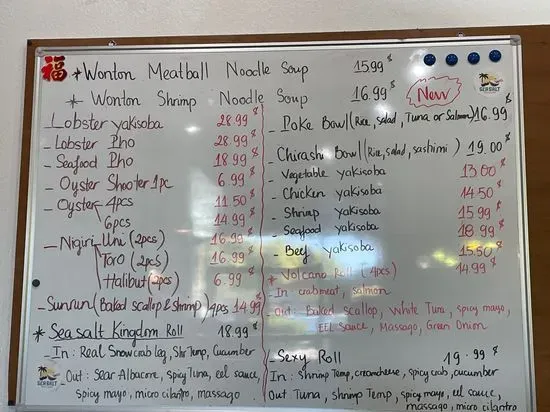 福
* Wonton Meatball Noodle Soup 15.99$
* Wonton Shrimp Noodle Soup 16.99$
New
SEASALT
Lobster yakisoba 28.99$
- Lobster Pho 28.99$
- Seafood Pho 18.99$
- Oyster Shooter 1pc 6.99$
- Oyster 4pcs 11.50$
6pcs 14.99$
- Nigiri Uni (2pcs) 16.99$
Toro (2pcs) 16.99$
Halibut (2pcs) 6.99$
- Sunrun (Baked scallop & shrimp) 4pcs 14.99$
* Seasalt Kingdom Roll 18.99$
- In : Real Snowcrab leg, Shr Temp, Cucumber
- Out : Sear Albacore, spicy Tuna, eel sauce,
spicy mayo, micro cilantro, massago
SEASALT
- Poke Bowl (Rice, salad, Tuna or Salmon) 16.99$
- Chirashi Bowl (Rice, salad, sashimi) 19.00$
- Vegetable yakisoba 13.00$
- Chicken yakisoba 14.50$
- Shrimp yakisoba 15.99$
- Seafood yakisoba 18.99$
- Beef yakisoba 15.50$
* Volcano Roll (4pcs) 14.99$
- In crabmeat, salmon
- Out : Baked scallop, White Tuna, spicy mayo,
EEL sauce, Massago, Green Onion
- Sexy Roll 19.99$
In : shrimp Temp, creamcheese, spicy crab, cucumber
Out Tuna, shrimp Temp, spicy mayo, eel sauce,
massago, micro cilantro